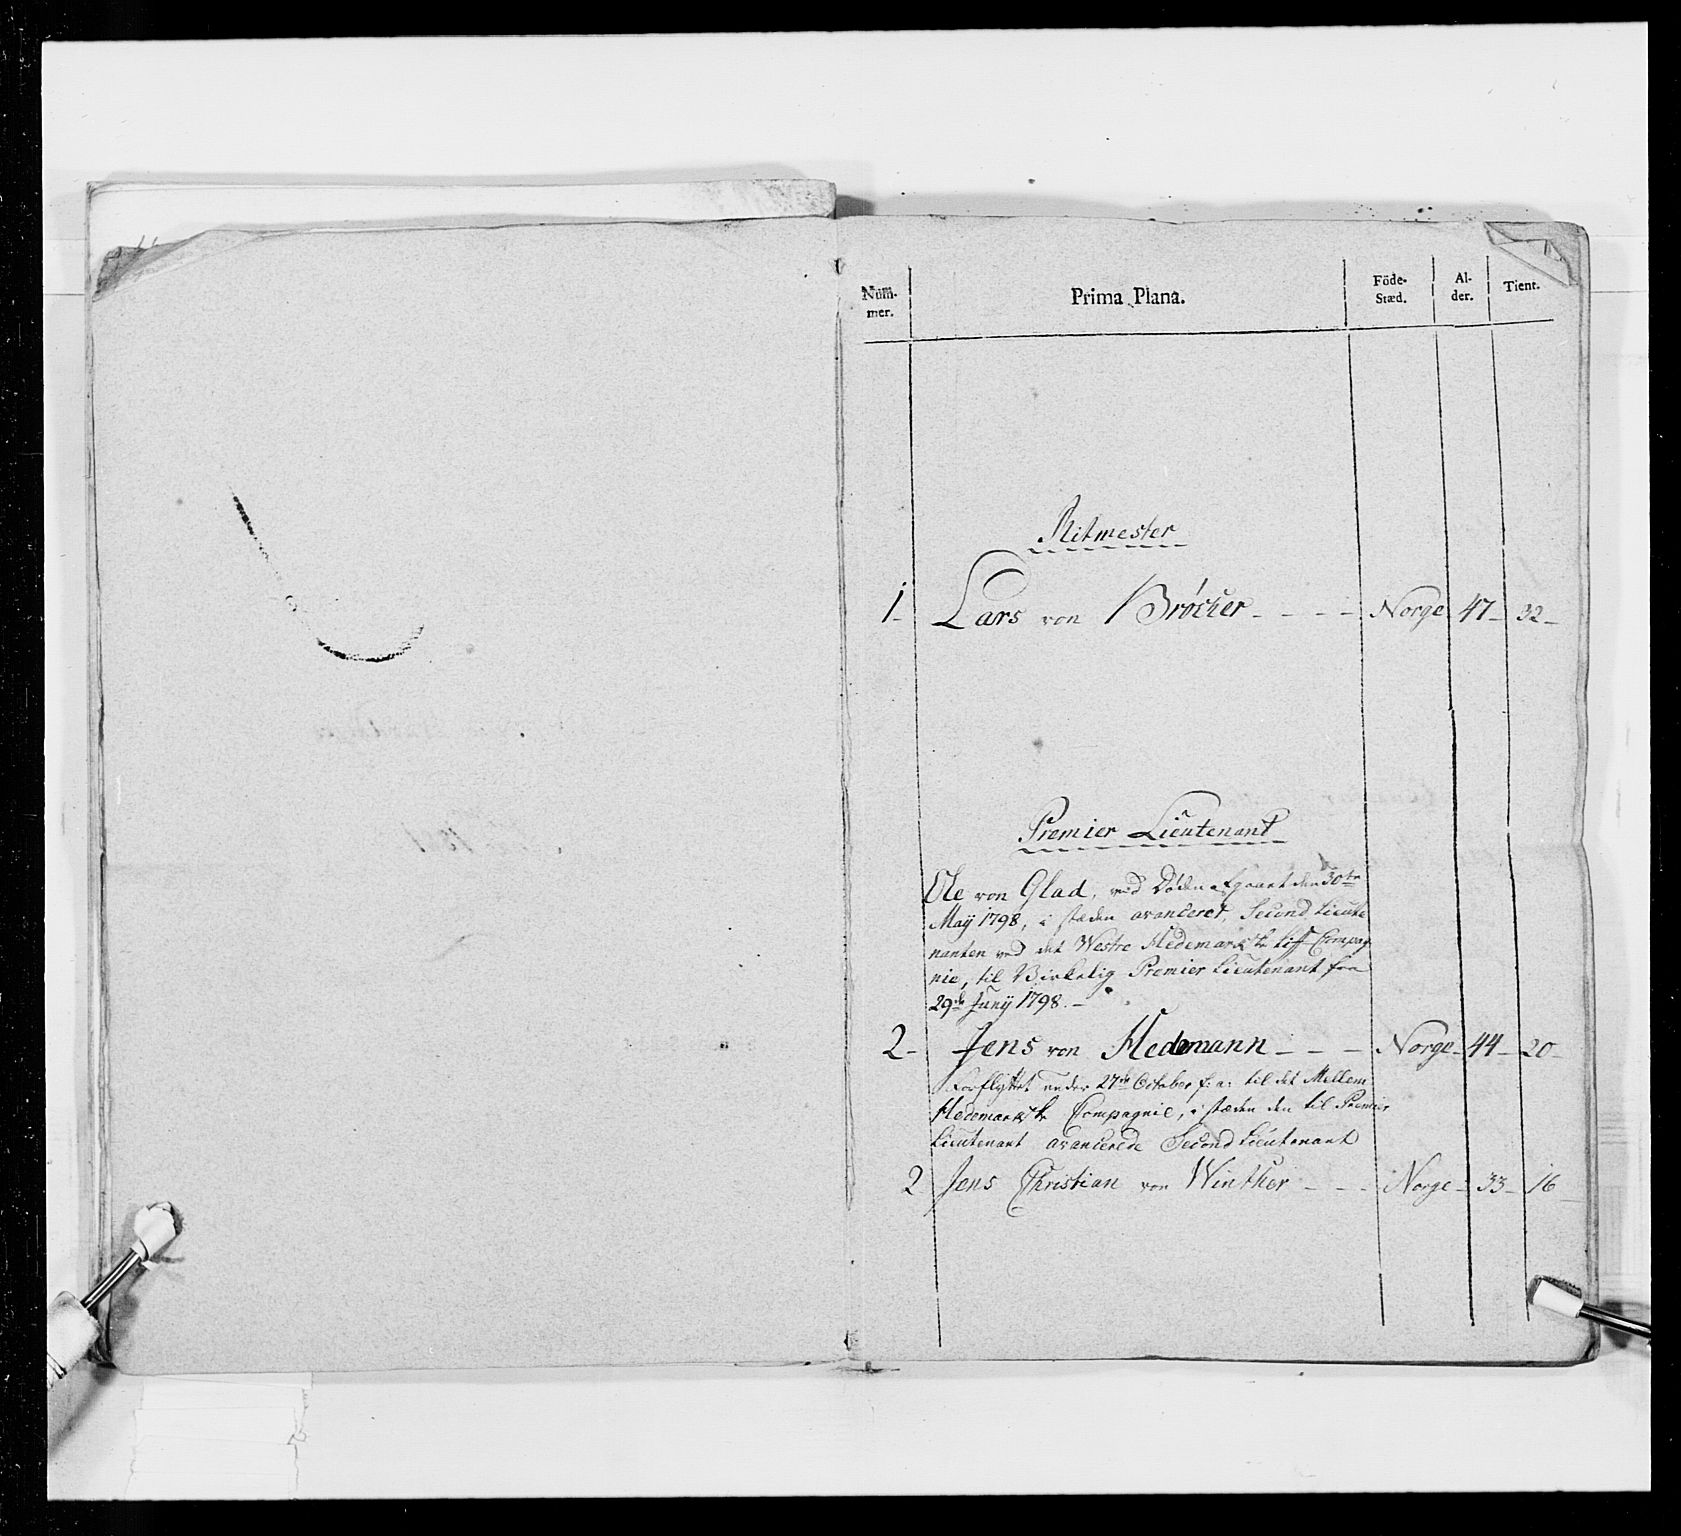 Num-
mer.
Prima Plana.
Föde-
Stæd.
Al-
der.
Tient.
Ritmester
1 Lars von Bröcker Norge 47 32
Premier Lieutenant
Ole von Glad, ved Döden afgaaet den 30te
May 1798, i stæden avanceret, Second Lieute
nanten ved det Westre Hedemarkske Liff Compag
nie, til Virkelig Premier Lieutenant fra
29de Junÿ 1798.
2 Jens von Hedemann Norge 44 20
Forflyttet under 27de October f: a: til det Mellem
Hedemarkske Compagnie, i stæden den til Premier
Lieutenant avancerede Second Lieutenant
2 Jens Christian von Winther Norge 33 16